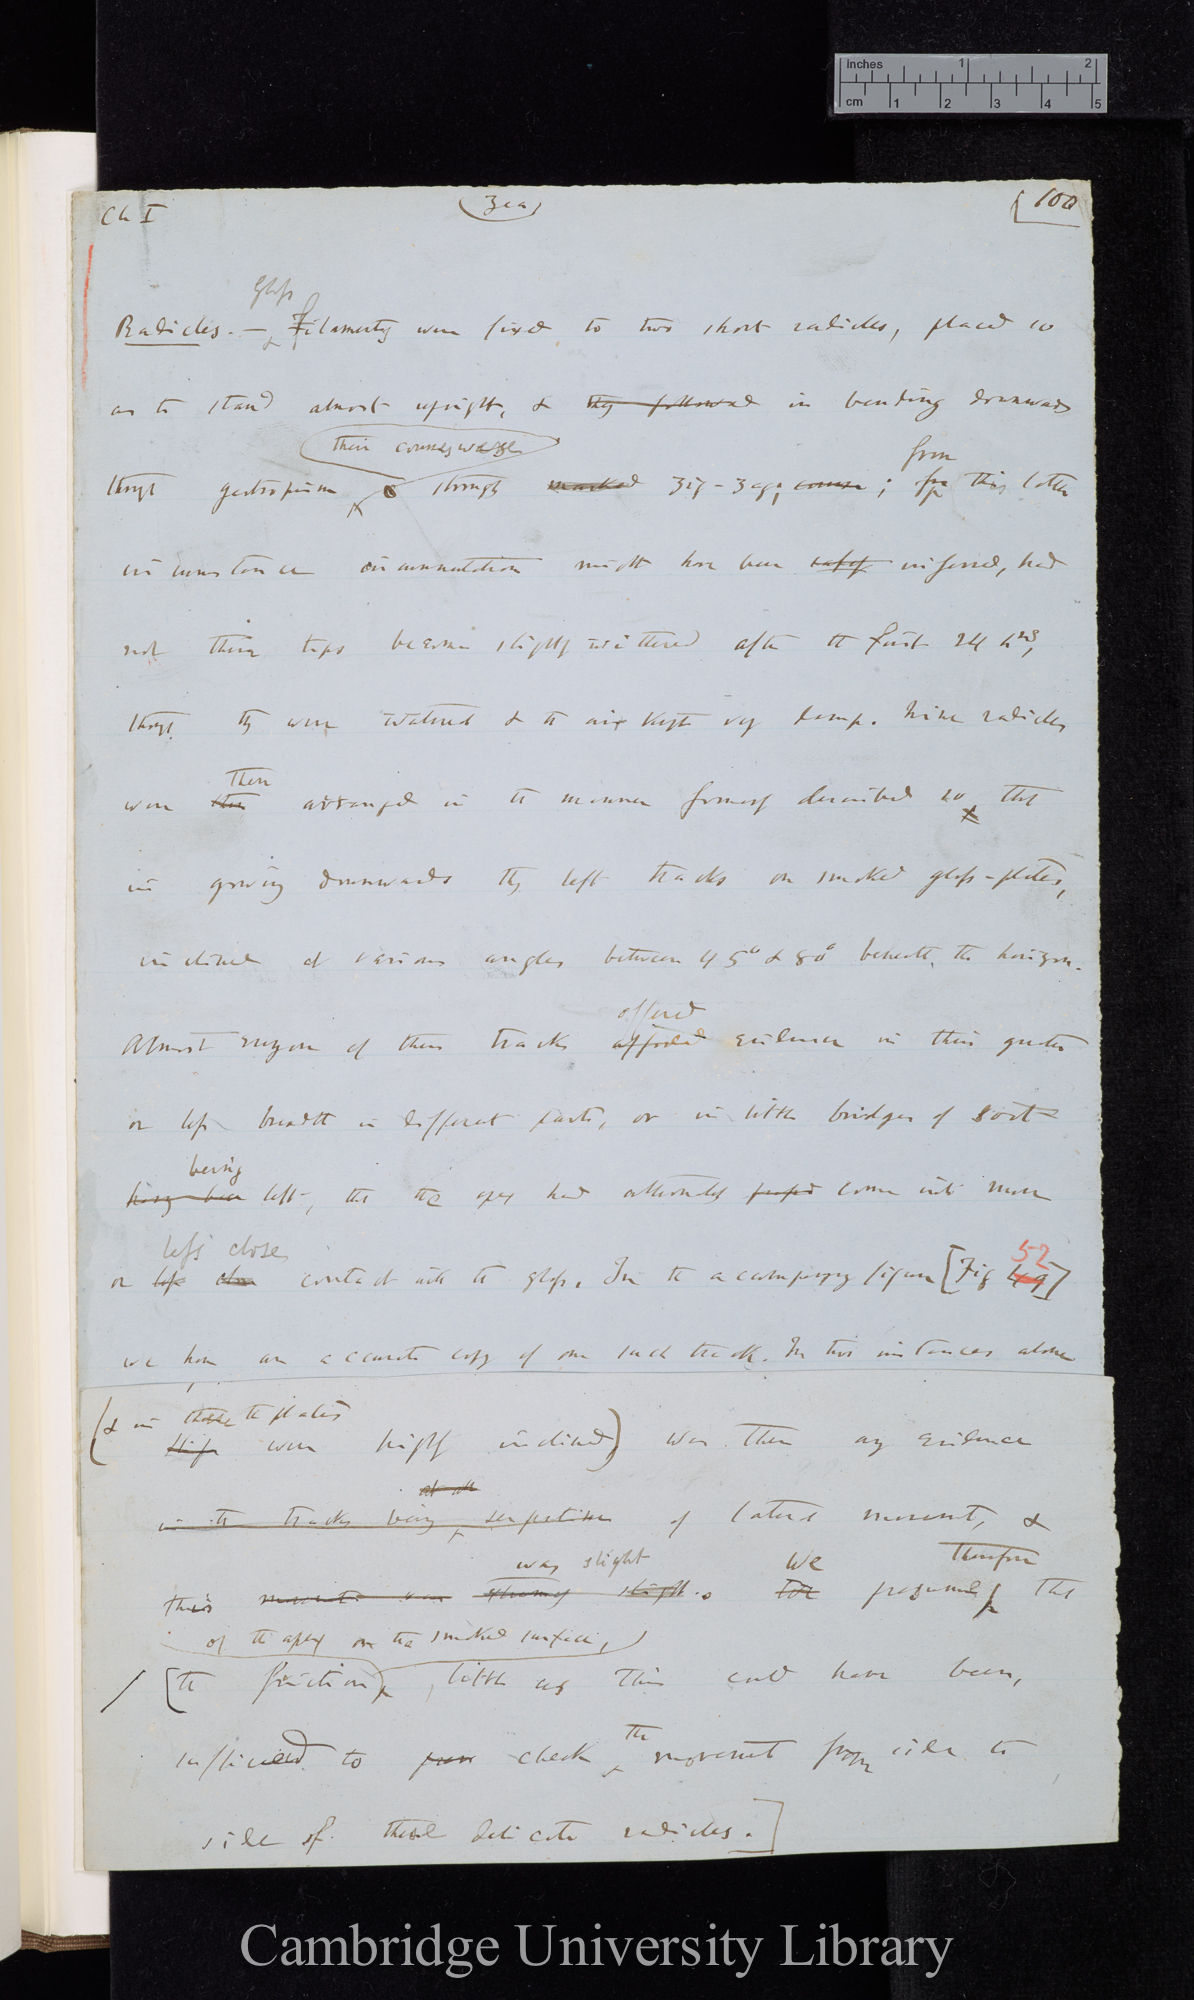 Inches 1 2
cm 1 2 3 4 5
Ch I (Zea) 100
Glass
Radicles. — Filaments were fixed to two short radicles, placed so
as to stand almost upright, & they followed in bending downwards
their courses were
through geotropism strongly marked zig-zag; course; from this latter
circumstance circumnutation might have been safely inferred, had
not their tips become slightly withered after the first 24 hrs,
though they were watered & the air kept very damp. Nine radicles
then
were then arranged in the manner formerly described so that
in growing downwards they left tracks on smoked glass-plates,
inclined at various angles between 45° & 80° beneath the horizon.
offered
Almost everyone of these tracks afforded evidence in their greater
or less breadth in different parts, or in little bridges of soot
being
having been left, that the apex had alternately come into more
less close
or less close contact with the glass. In the accompanying figure [Fig 49] 52
we have an accurate copy of one such track. In two instances alone
(& in these the plates
were highly inclined) was there any evidence
at all
in the tracks being serpentine of lateral movement, &
was slight We therefore
this movement was extremely slight. presume that
of the apex on the smoked surface,
[the friction, little as this could have been,
the
sufficed to check movement from side to
side of these delicate radicles.]
Cambridge University Library